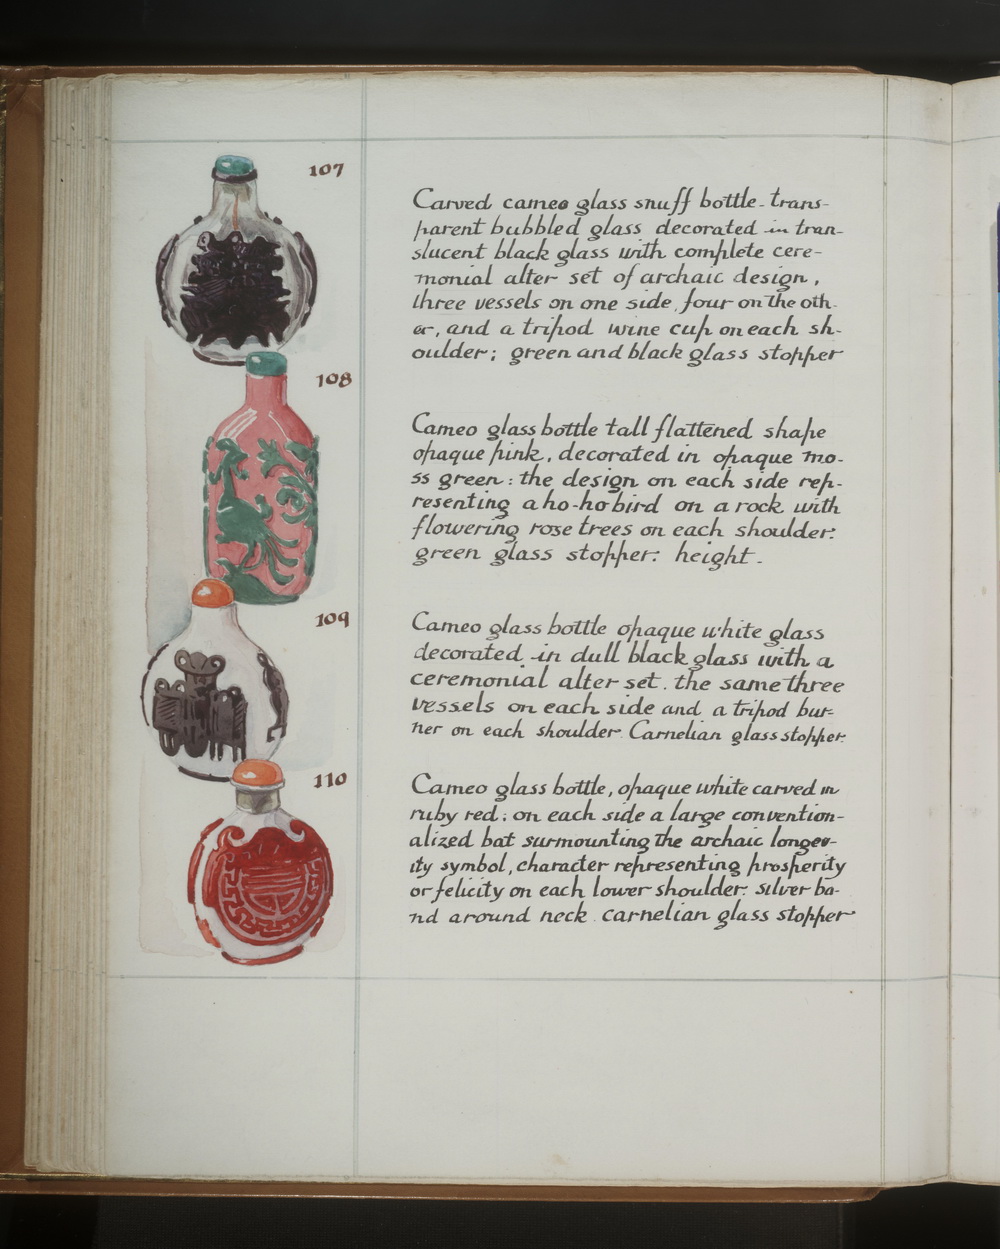 107
Carved cameo glass snuff bottle - trans-
parent bubbled glass decorated in tran-
slucent black glass with complete cere-
monial alter set of archaic design,
three vessels on one side, four on the oth-
er, and a tripod wine cup on each sh-
oulder; green and black glass stopper
108
Cameo glass bottle tall flattened shape
opaque pink, decorated in opaque mo-
ss green: the design on each side rep-
resenting a ho-ho bird on a rock with
flowering rose trees on each shoulder:
green glass stopper: height -
109
Cameo glass bottle opaque white glass
decorated in dull black glass with a
ceremonial alter set. the same three
vessels on each side and a tripod bur-
ner on each shoulder. Carnelian glass stopper.
110
Cameo glass bottle, opaque white carved in
ruby red: on each side a large convention-
alized bat surmounting the archaic longev-
ity symbol, character representing prosperity
or felicity on each lower shoulder: silver ba-
nd around neck. carnelian glass stopper